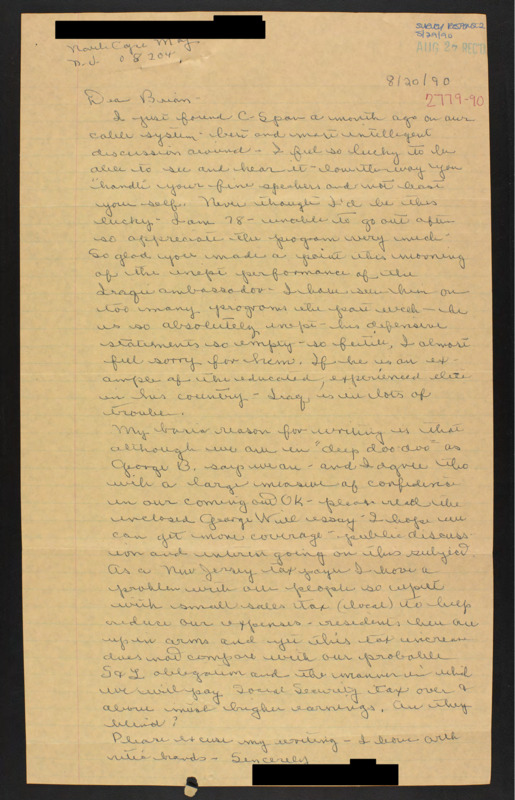 SHIRLEY
8/29/90
AUG 27 REC'D
North Cape May
N.J. 08204
8/20/90
2779-90
Dear Brian -
I just found C-Span a month ago on our
cable system - best and most intelligent
discussion around - I feel so lucky to be
able to see and hear it - love the way you
"handle" your fine speakers and not least
your self. Never thought I'd be this
lucky - I am 78 - unable to go out often
so appreciate the program very much.
So glad you made a point this morning
of the inept performance of the
Iraqi ambassador. I have seen him on
too many programs the past week - he
is so absolutely inept - his defensive
statements so empty - so futile, I almost
feel sorry for him. If he is an ex-
ample of the educated, experienced elite
in his country - Iraq is in lots of
trouble.
My basic reason for writing is that
although we are in "deep doo doo" as
George B. says we are - and I agree tho
with a large measure of confidence
in our coming out OK - please read the
enclosed George Will essay - I hope we
can get more coverage - public discuss-
ion and interest going on this subject.
As a New Jersey tax payer I have a
problem with our people so upset
with small sales tax (local) to help
reduce our expenses - residents here are
up in arms and yet this tax increase
does not compare with our probable
S&L obligation and the manner in which
we will pay Social Security tax over &
above most higher earnings. Are they
blind?
Please excuse my writing - I have arth
ritic hands - Sincerely